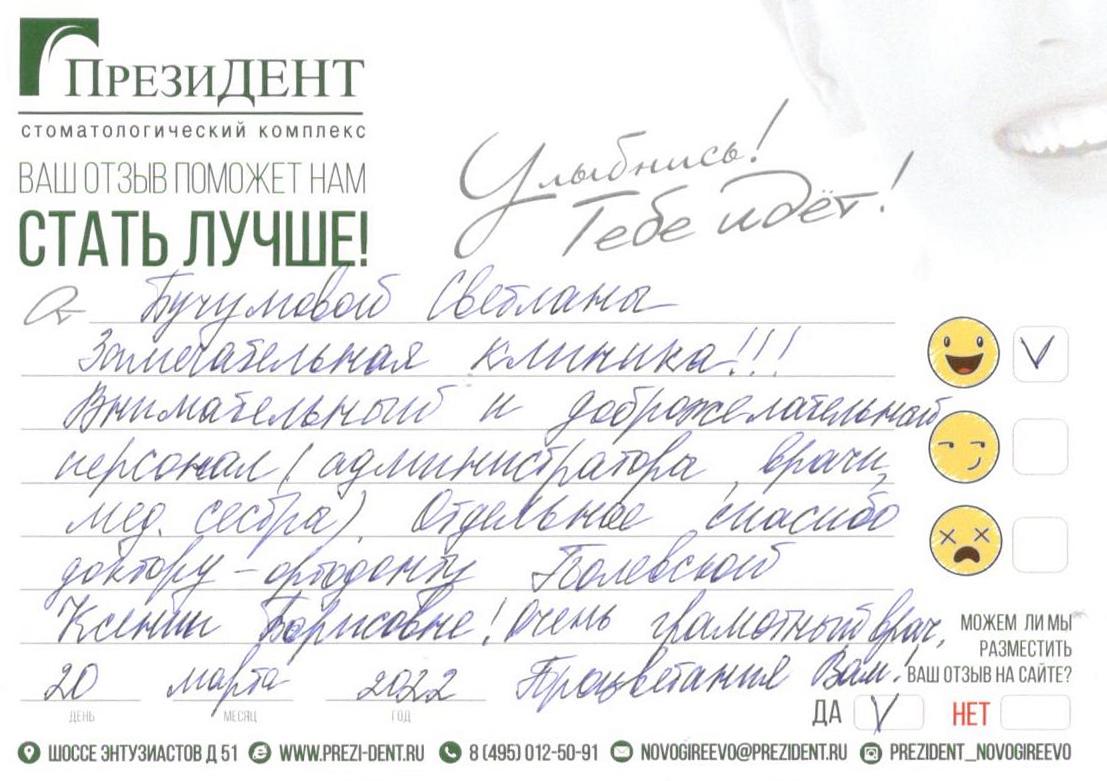 ПрезиДЕНТ
стоматологический комплекс
ВАШ ОТЗЫВ ПОМОЖЕТ НАМ
СТАТЬ ЛУЧШЕ!
Улыбнись!
Тебе идёт!
От Бучумовой Светланы
Замечательная клиника!!!
Внимательный и доброжелательный
персонал (администратора, врачи,
мед. сестра). Отдельное спасибо
доктору-ортодонту Полевской
Ксении Борисовне! Очень грамотный врач.
Процветания Вам!
20 марта 2022
ДЕНЬ МЕСЯЦ ГОД
МОЖЕМ ЛИ МЫ
РАЗМЕСТИТЬ
ВАШ ОТЗЫВ НА САЙТЕ?
ДА V НЕТ
ШОССЕ ЭНТУЗИАСТОВ Д 51 WWW.PREZI-DENT.RU 8 (495) 012-50-91 NOVOGIREEVO@PREZIDENT.RU PREZIDENT_NOVOGIREEVO